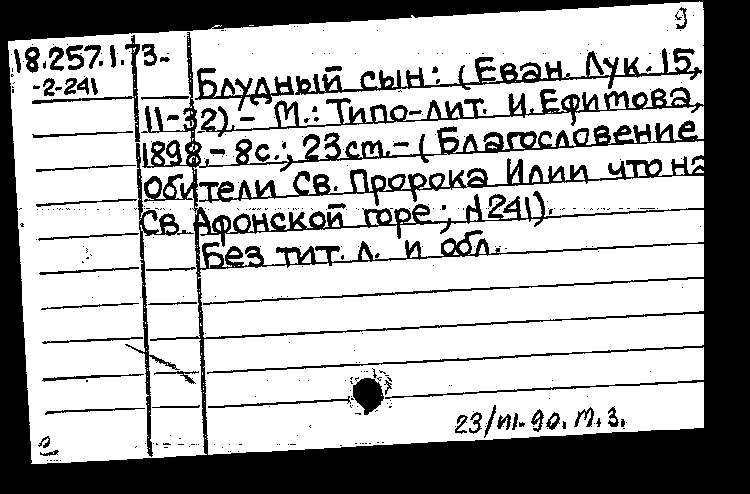 9
18.257.1.73-
-2-241
Блудный сын: (Еван. Лук. 15,
11-32).- М.: Типо-лит. И. Ефимова,
1898.- 8с.; 23см.- (Благословение
Обители Св. Пророка Илии что на
Св. Афонской горе; №241).
Без тит. л. и обл.
23/VII-90. М.З.